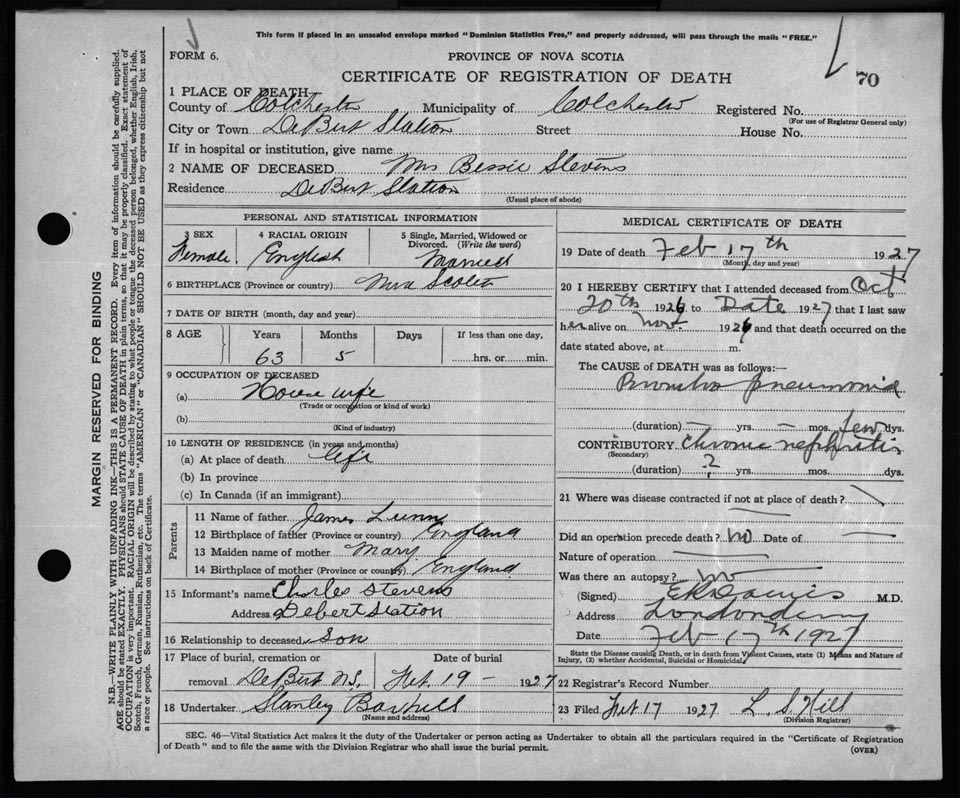 This form if placed in an unsealed envelope marked "Dominion Statistics Free," and properly addressed, will pass through the mails "FREE."
FORM 6.
PROVINCE OF NOVA SCOTIA
CERTIFICATE OF REGISTRATION OF DEATH
70
1 PLACE OF DEATH
County of Colchester Municipality of Colchester Registered No.
(For use of Registrar General only)
City or Town DeBert Station Street House No.
If in hospital or institution, give name
2 NAME OF DECEASED Mrs Bessie Stevens
Residence DeBert Station
(Usual place of abode)
PERSONAL AND STATISTICAL INFORMATION
3 SEX 4 RACIAL ORIGIN 5 Single, Married, Widowed or Divorced. (Write the word)
Female. English Married
6 BIRTHPLACE (Province or country) Nova Scotia
7 DATE OF BIRTH (month, day and year)
8 AGE Years Months Days If less than one day,
63 5 hrs. or min.
9 OCCUPATION OF DECEASED
(a) House wife
(Trade or occupation or kind of work)
(b)
(Kind of industry)
10 LENGTH OF RESIDENCE (in years and months)
(a) At place of death Life
(b) In province
(c) In Canada (if an immigrant)
Parents
11 Name of father James Lunn
12 Birthplace of father (Province or country) England
13 Maiden name of mother Mary
14 Birthplace of mother (Province or country) England
15 Informant's name Charles Stevens
Address Debert Station
16 Relationship to deceased Son
17 Place of burial, cremation or Date of burial
removal DeBert N.S. Feb. 19 - 1927
18 Undertaker Stanley Barhill
(Name and address)
MEDICAL CERTIFICATE OF DEATH
19 Date of death Feb 17th 1927
(Month, day and year)
20 I HEREBY CERTIFY that I attended deceased from Oct
20th 1926 to Date 1927 that I last saw
her alive on Nov. 1926 and that death occurred on
date stated above, at m.
The CAUSE of DEATH was as follows:—
Broncho pneumonia
(duration) — yrs. — mos. few dys.
CONTRIBUTORY Chronic nephritis
(Secondary)
(duration) ? yrs. mos. dys.
21 Where was disease contracted if not at place of death?
Did an operation precede death? No Date of —
Nature of operation
Was there an autopsy? no
(Signed) M.D.
Address Londonderry
Date Feb 17th 1927
State the Disease causing Death, or in death from Violent Causes, state (1) Means and Nature of
Injury, (2) whether Accidental, Suicidal or Homicidal.
22 Registrar's Record Number
23 Filed Feb 17 1927 L. S. Hill
(Division Registrar)
SEC. 46—Vital Statistics Act makes it the duty of the Undertaker or person acting as Undertaker to obtain all the particulars required in the "Certificate of Registration
of Death" and to file the same with the Division Registrar who shall issue the burial permit.
(OVER)
MARGIN RESERVED FOR BINDING
N.B.—WRITE PLAINLY WITH UNFADING INK—THIS IS A PERMANENT RECORD. Every item of information should be carefully supplied.
AGE should be stated EXACTLY. PHYSICIANS should STATE CAUSE OF DEATH in plain terms, so that it may be properly classified. Exact statement of
OCCUPATION is very important. RACIAL ORIGIN will be described by stating to what people or tongue the deceased person belonged, whether English, Irish,
Scotch, French, German, Russian, Ruthenian, etc. The terms "AMERICAN" or "CANADIAN" SHOULD NOT BE USED as they express citizenship but not
a race or people. See instructions on back of Certificate.